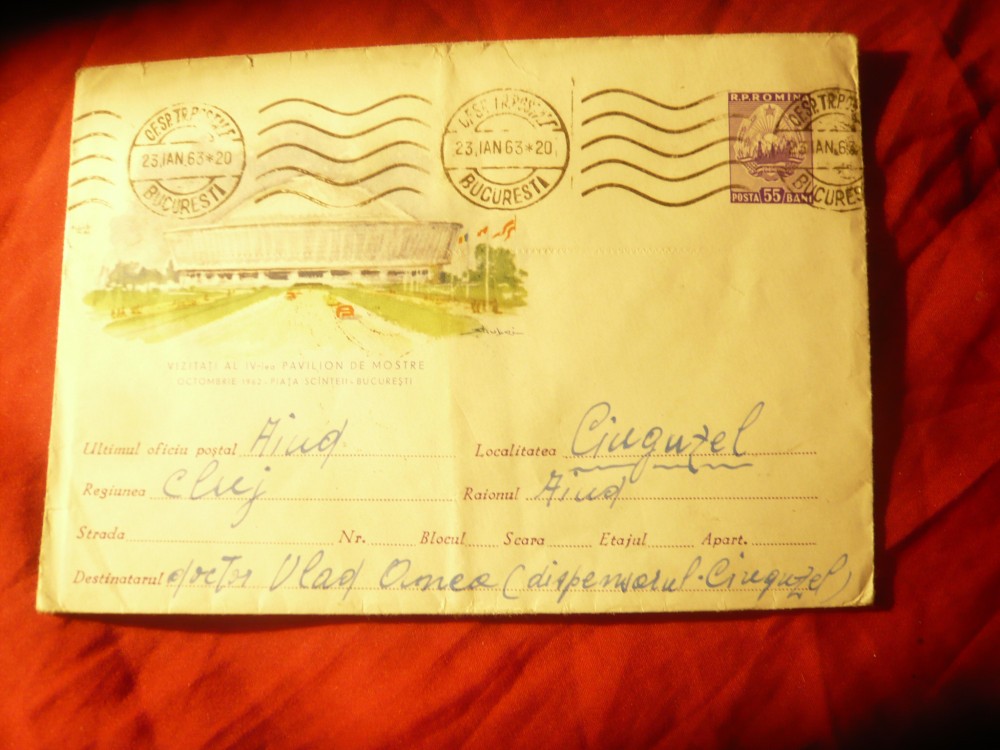 OF.SP.TR.POSTUT
23.IAN.63*20
BUCURESTI
OF.SP.TR.POSTUT
23.IAN.63*20
BUCURESTI
R.P.ROMIN
POSTA 55 BANI
OF.SP.TR.POS
IAN.63
BUCURES
VIZITAȚI AL IV-lea PAVILION DE MOSTRE
OCTOMBRIE 1962 - PIAȚA SCÎNTEII - BUCUREȘTI
Ultimul oficiu poștal Aiud Localitatea Ciuguzel
Regiunea Cluj Raionul Aiud
Strada Nr. Blocul Scara Etajul Apart.
Destinatarul doctor Vlad Omea (dispensarul Ciuguzel)